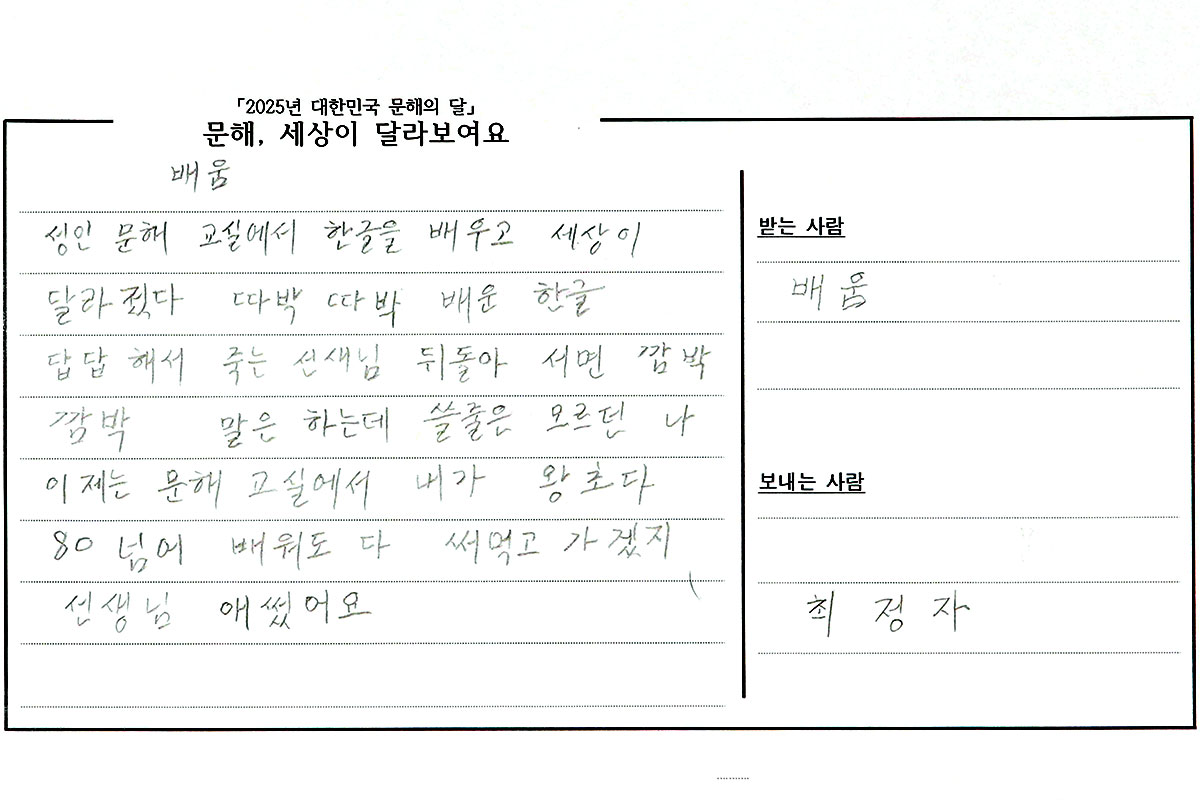 「2025년 대한민국 문해의 달」
문해, 세상이 달라보여요
배움
성인 문해 교실에서 한글을 배우고 세상이
달라졌다 따박 따박 배운 한글
답답 해서 죽는 선새님 뒤돌아 서면 깜박
깜박 말은 하는데 쓸줄은 모르던 나
이제는 문해 교실에서 내가 왕초다
80 넘어 배워도 다 써먹고 가겠지
선생님 애썼어요
받는 사람
배움
보내는 사람
최정자